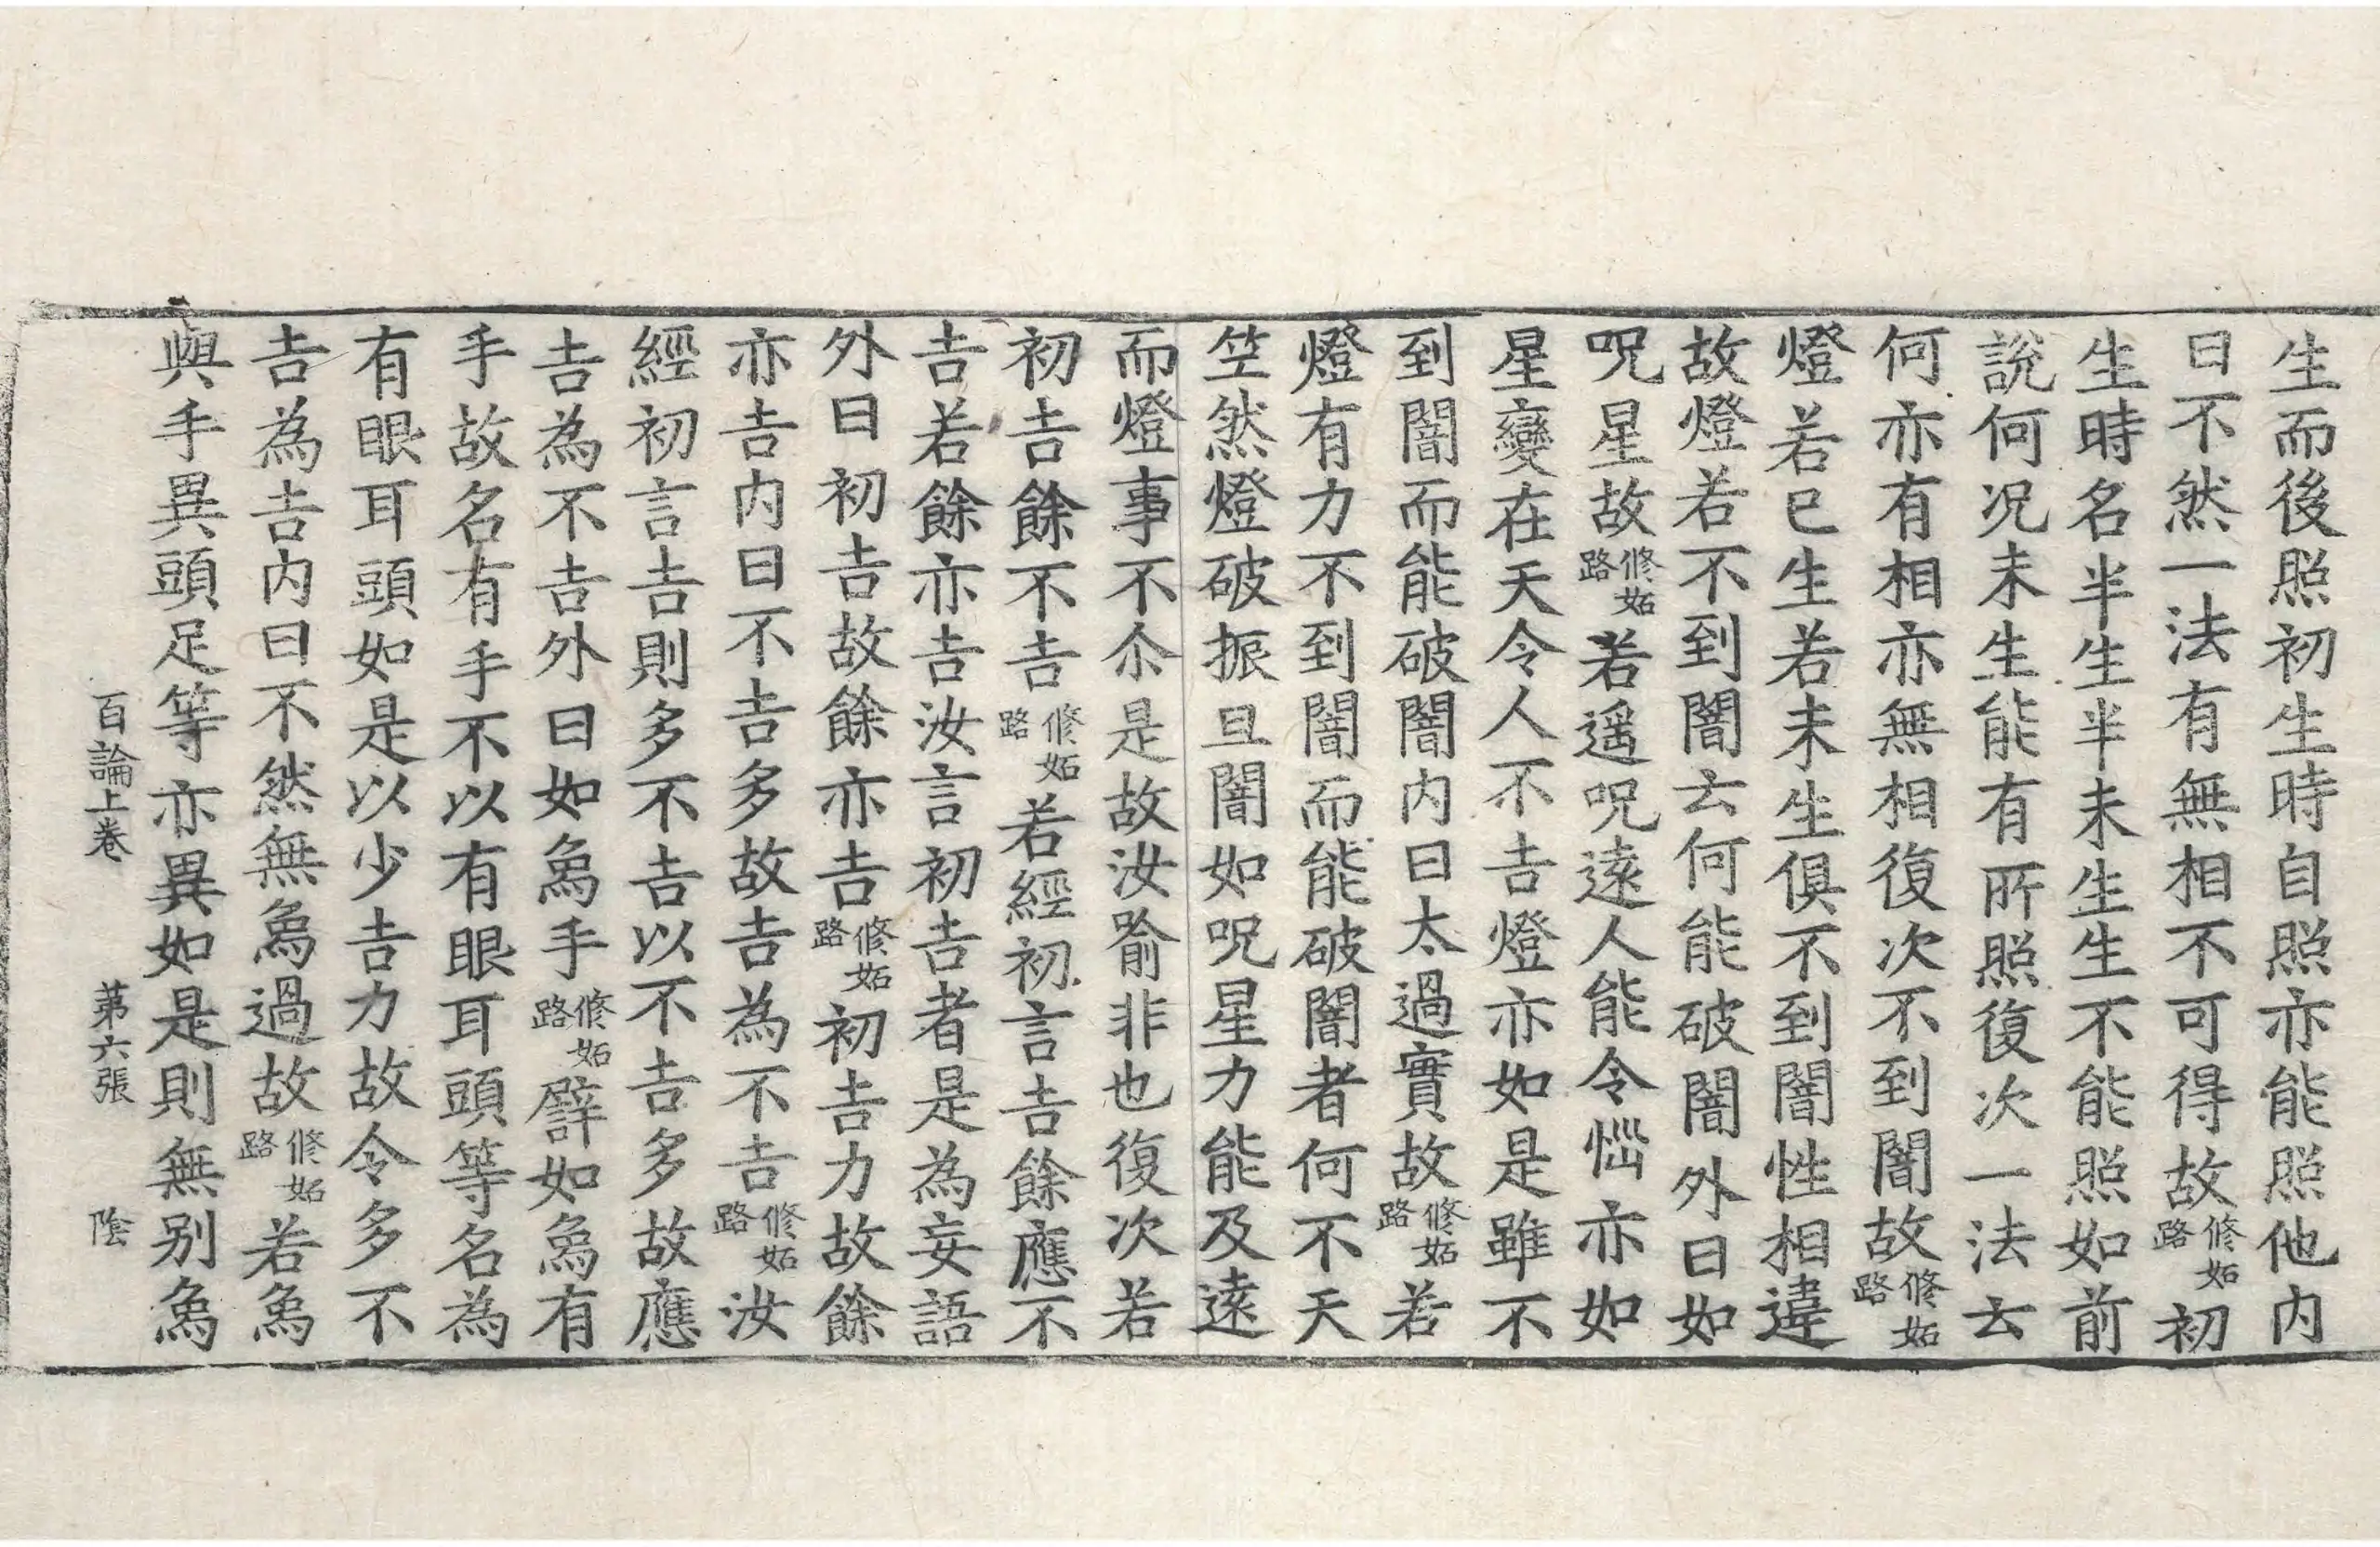 生而後照初生時自照亦能照他内
曰不然一法有無相不可得故修妬路初
生時名半生半未生生不能照如前
說何況未生能有所照復次一法云
何亦有相亦無相復次不到闇故修妬路
燈若已生若未生俱不到闇性相違
故燈若不到闇云何能破闇外曰如
呪星故修妬路若遥呪遠人能令惱亦如
星變在天令人不吉燈亦如是雖不
到闇而能破闇内曰太過實故修妬路若
燈有力不到闇而能破闇者何不天
竺然燈破振旦闇如呪星力能及遠
而燈事不尒是故汝喻非也復次若
初吉餘不吉修妬路若經初言吉餘應不
吉若餘亦吉汝言初吉者是為妄語
外曰初吉故餘亦吉修妬路初吉力故餘
亦吉内曰不吉多故吉為不吉修妬路汝
經初言吉則多不吉以不吉多故應
吉為不吉外曰如為手修妬路譬如為有
手故名有手不以有眼耳頭等名為
有眼耳頭如是以少吉力故令多不
吉為吉内曰不然無為過故修妬路若為
與手異頭足等亦異如是則無别為
百論上卷 第六張 陰